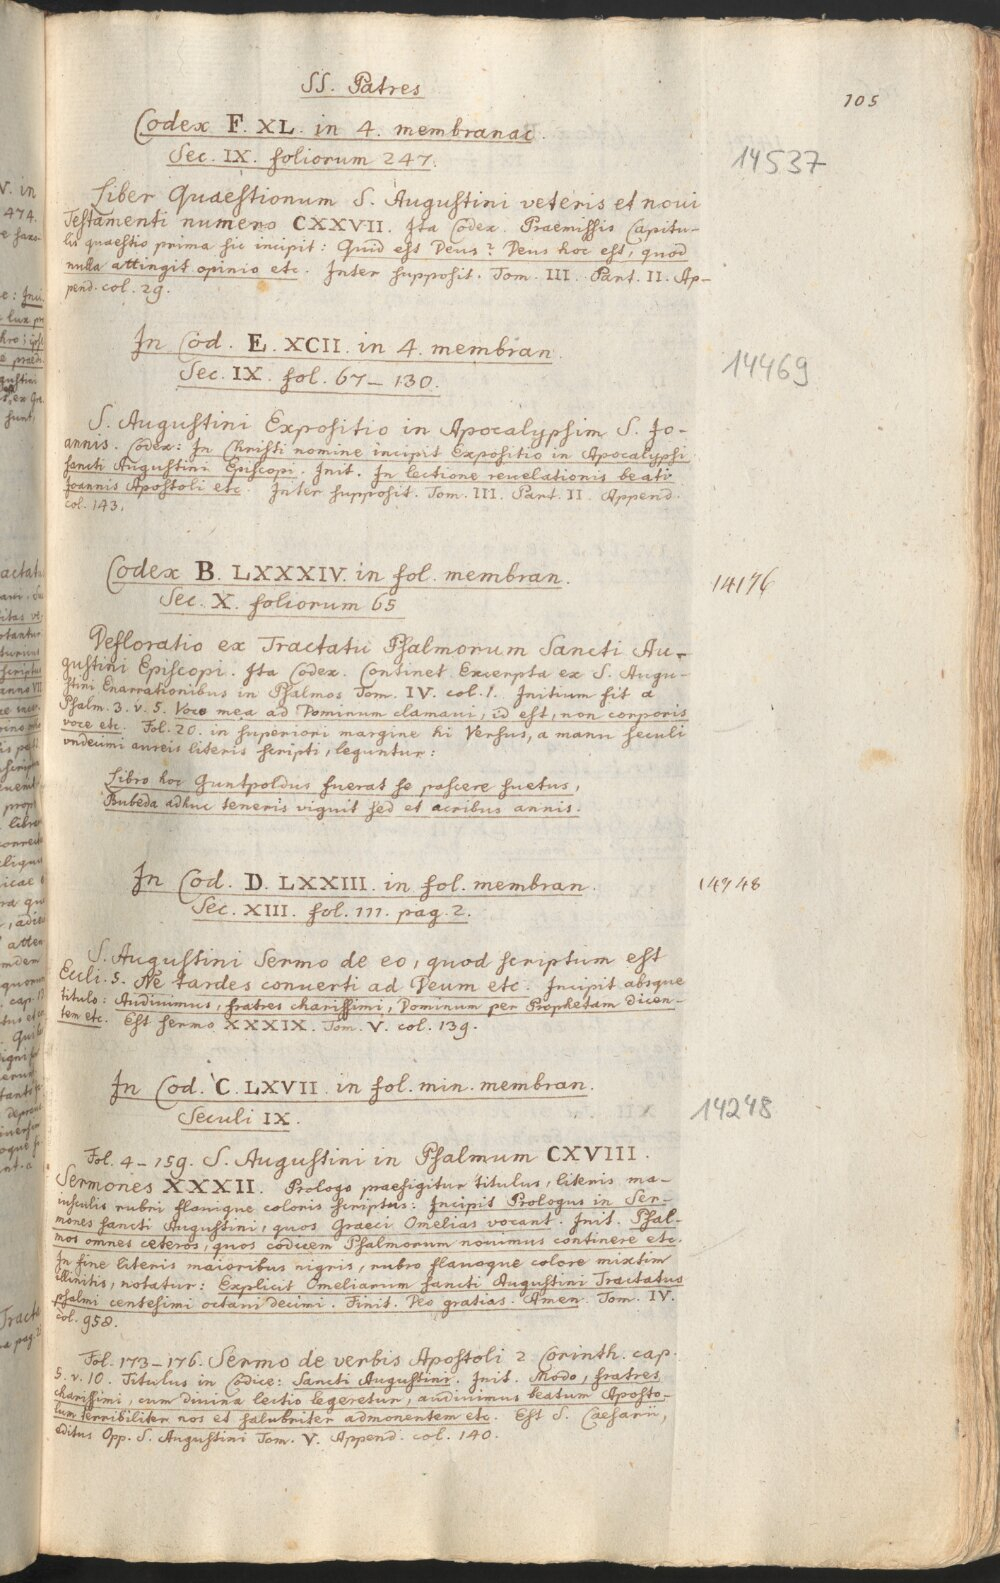 SS. Patres
105
Codex F. XL. in 4. membranac.
14537
Sec. IX. foliorum 247.
Liber Quaestionum S. Augustini veteris et noui
Testamenti numero CXXVII. Ita Codex. Praemissis Capitu-
lis quaestio prima sic incipit: Quid est Deus? Deus hoc est, quod
nulla attingit opinio etc. Inter supposit. Tom. III. Part. II. Ap-
pend. col. 29.
In Cod. E. XCII. in 4. membran.
14469
Sec. IX. fol. 67–130.
S. Augustini Expositio in Apocalypsim S. Jo-
annis. Codex: In Christi nomine incipit Expositio in Apocalypsi
sancti Augustini Episcopi. Init. In lectione reuelationis beati
Joannis Apostoli etc. Inter supposit. Tom. III. Part. II. Append.
col. 143.
Codex B. LXXXIV. in fol. membran.
14176
Sec. X. foliorum 65
Defloratio ex Tractatu Psalmorum Sancti Au-
gustini Episcopi. Ita Codex. Continet Excerpta ex S. Augu-
stini Enarrationibus in Psalmos Tom. IV. col. 1. Initium fit a
Psalm. 3. v. 5. Voce mea ad Dominum clamaui, id est, non corporis
voce etc. Fol. 20. in superiori margine hi Versus, a manu seculi
vndecimi aureis literis scripti, leguntur:
Libro hoc Guntpoldus fuerat se pascere suetus,
Bubeda adhuc teneris viguit sed et acribus annis.
In Cod. D. LXXIII. in fol. membran.
Sec. XIII. fol. 111. pag. 2.
S. Augustini Sermo de eo, quod scriptum est
Eccli. 5. Ne tardes conuerti ad Deum etc. Incipit absque
titulo: Audiuimus, fratres charissimi, Dominum per Prophetam dicen-
tem etc. Est sermo XXXIX. Tom. V. col. 139.
In Cod. C. LXVII. in fol. min. membran.
14248
Seculi IX.
Fol. 4–159. S. Augustini in Psalmum CXVIII.
Sermones XXXII. Prologo praefigitur titulus, literis ma-
iusculis rubri flauique coloris scriptus: Incipit Prologus in Ser-
mones sancti Augustini, quos Graeci Omelias vocant. Init. Psal-
mos omnes ceteros, quos codicem Psalmorum nouimus continere etc.
In fine literis maioribus nigris, rubro flauoque colore mixtim
illinitis, notatur: Explicit Omeliarum sancti Augustini Tractatus
psalmi centesimi octaui decimi. Finit. Deo gratias. Amen. Tom. IV.
col. 958.
Fol. 173–176. Sermo de verbis Apostoli 2 Corinth. cap.
5. v. 10. Titulus in Codice: Sancti Augustini. Init. Modo, fratres
charissimi, cum diuina lectio legeretur, audiuimus beatum Aposto-
lum terribiliter nos et salubriter admonentem etc. Est S. Caesarii,
editus Opp. S. Augustini Tom. V. Append. col. 140.